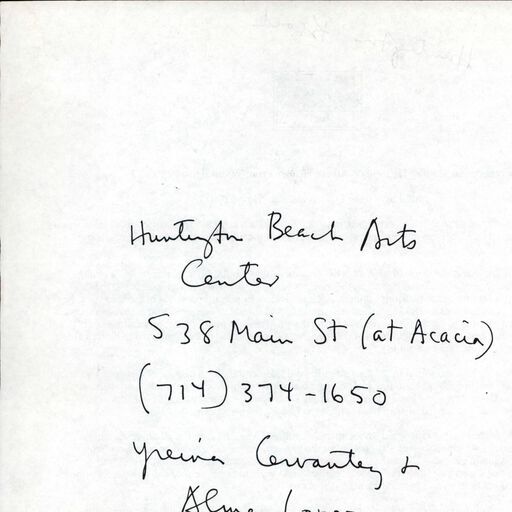 Huntington Beach Arts
Center
538 Main St (at Acacia)
(714) 374-1650
Yreina Cervantez &
Alma